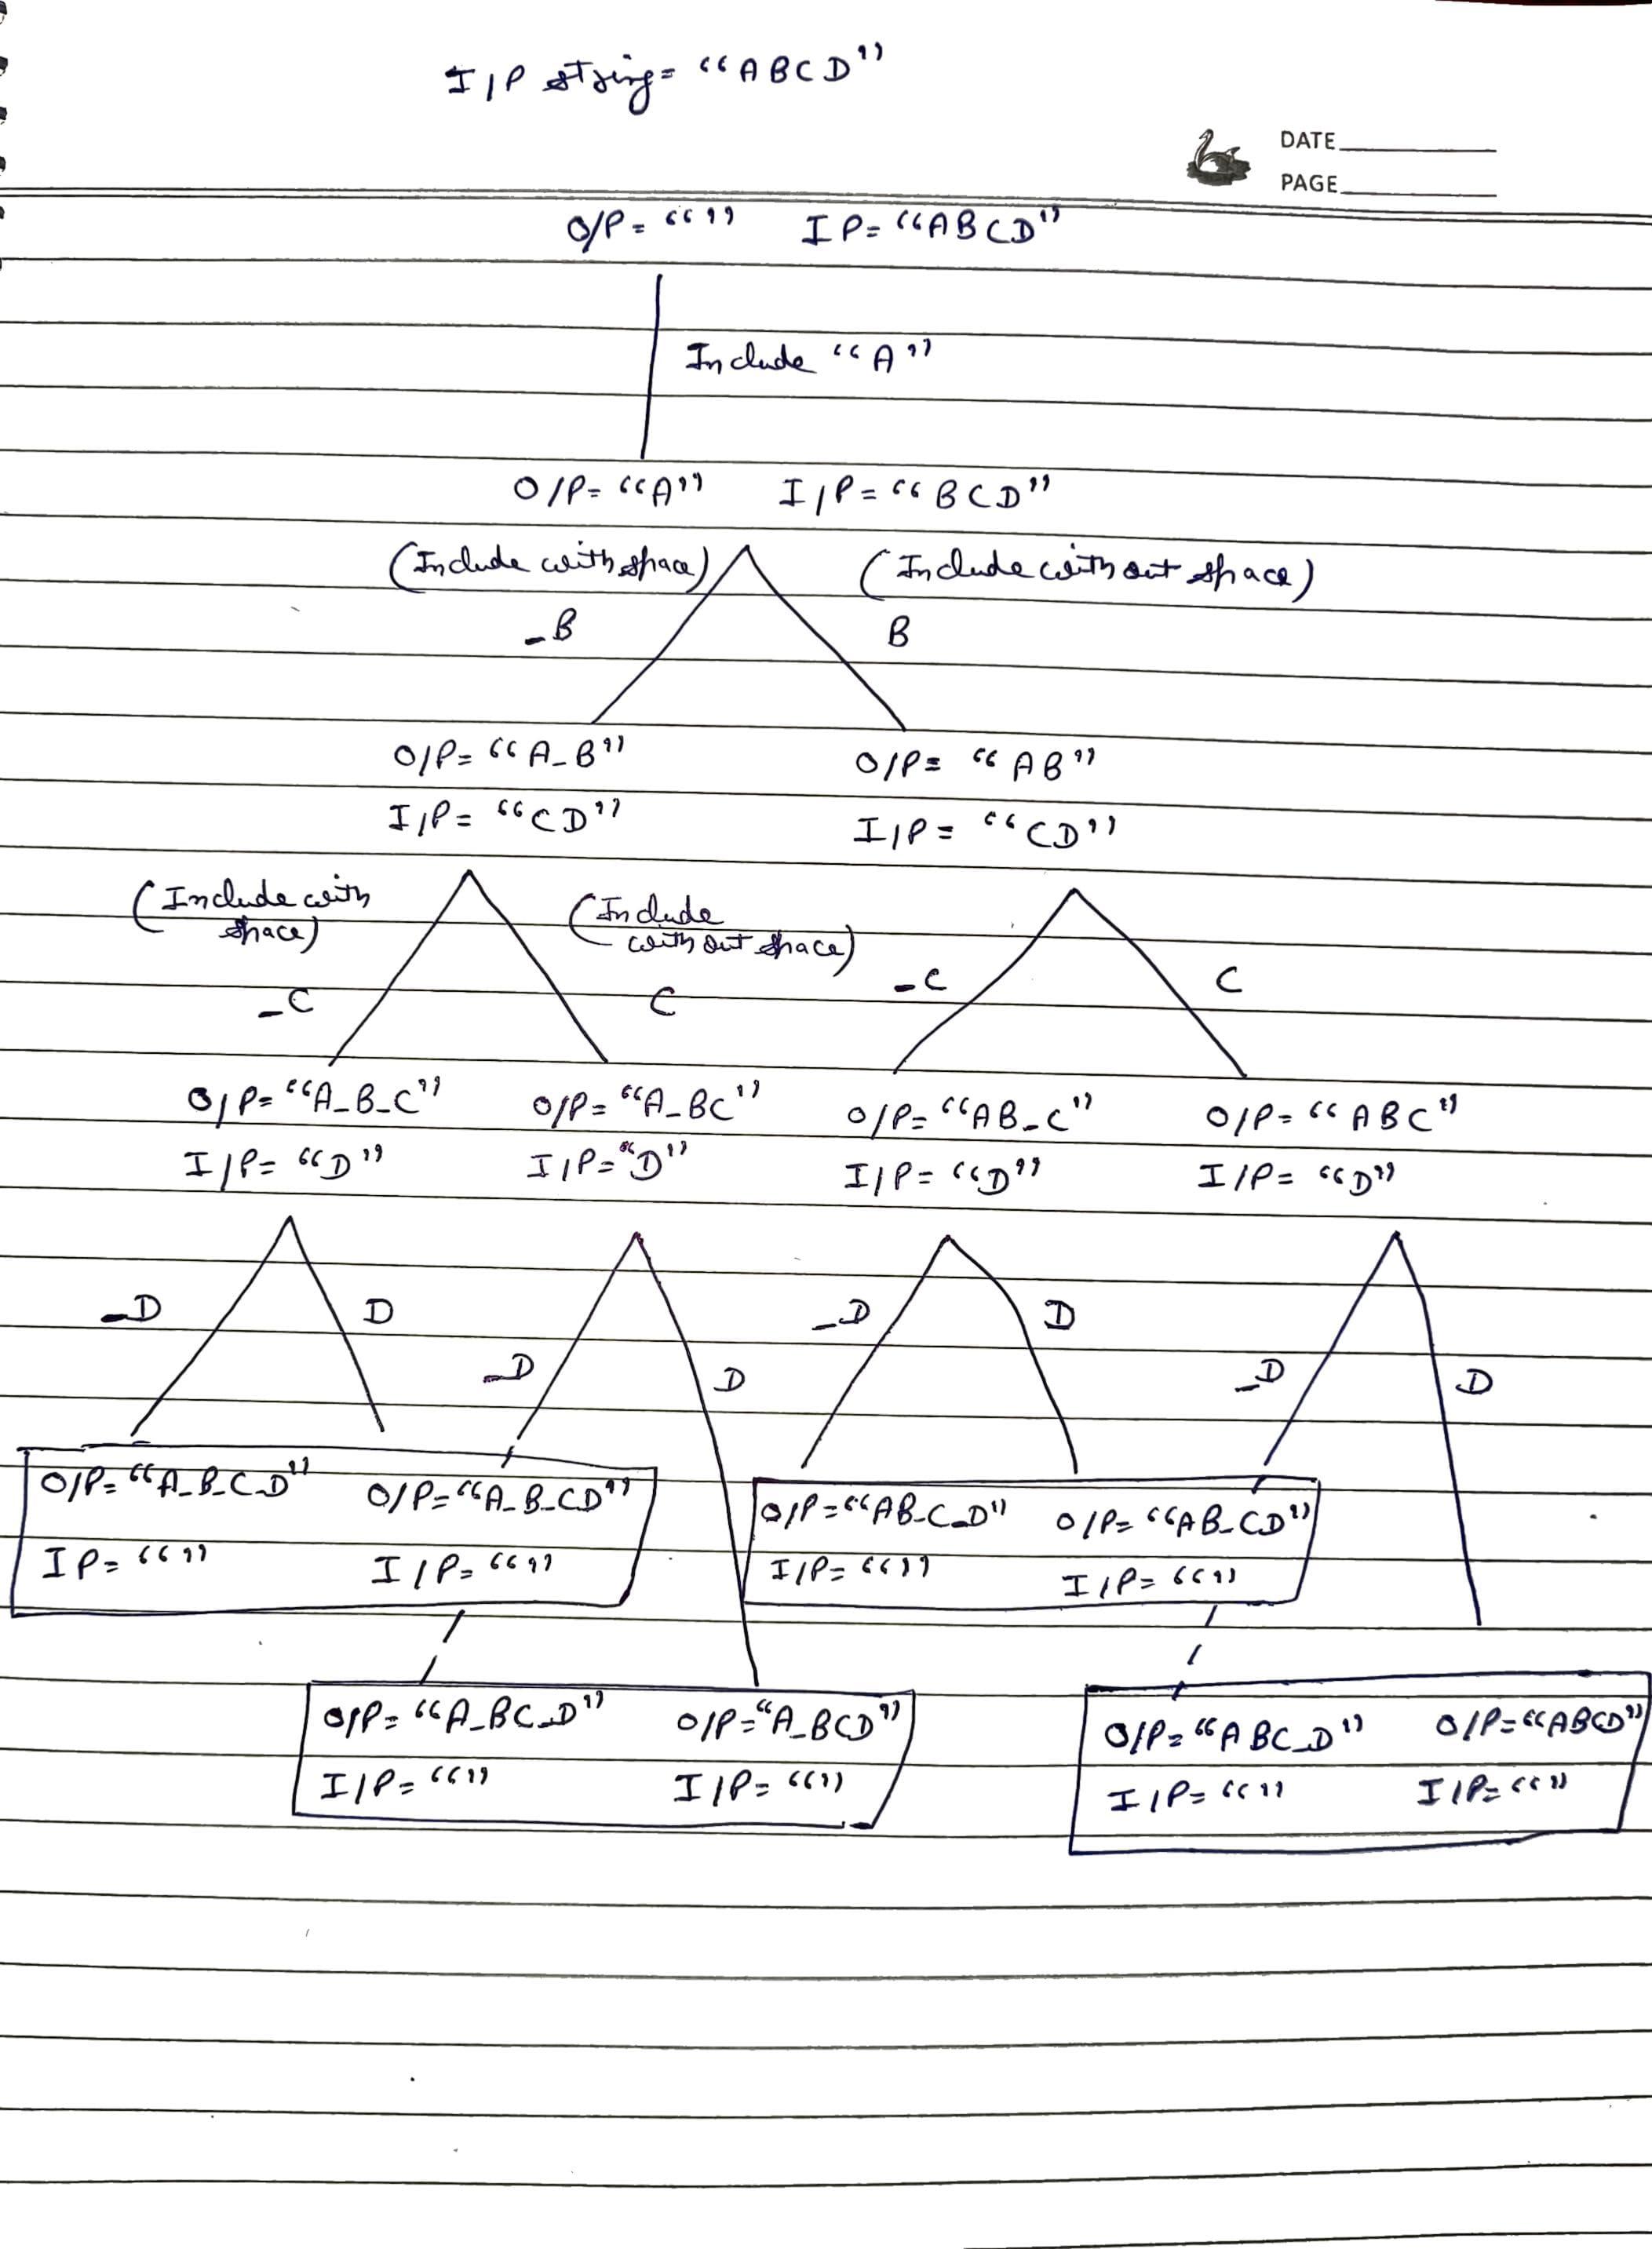 I/P string= “ABCD”
DATE
PAGE
O/P= “” IP= “ABCD”
Include “A”
O/P= “A” I/P= “BCD”
(Include with space) (Include without space)
_B B
O/P= “A_B” O/P= “AB”
I/P= “CD” I/P= “CD”
(Include with (Include
space) without space)
_C C _C C
O/P= “A_B_C” O/P= “A_BC” O/P= “AB_C” O/P= “ABC”
I/P= “D” I/P= “D” I/P= “D” I/P= “D”
_D D _D D
_D D _D D
O/P= “A_B_C_D” O/P= “A_B_CD” O/P= “AB_C_D” O/P= “AB_CD”
IP= “” I/P= “” I/P= “” I/P= “”
O/P= “A_BC_D” O/P= “A_BCD” O/P= “ABC_D” O/P= “ABCD”
I/P= “” I/P= “” I/P= “” I/P= “”